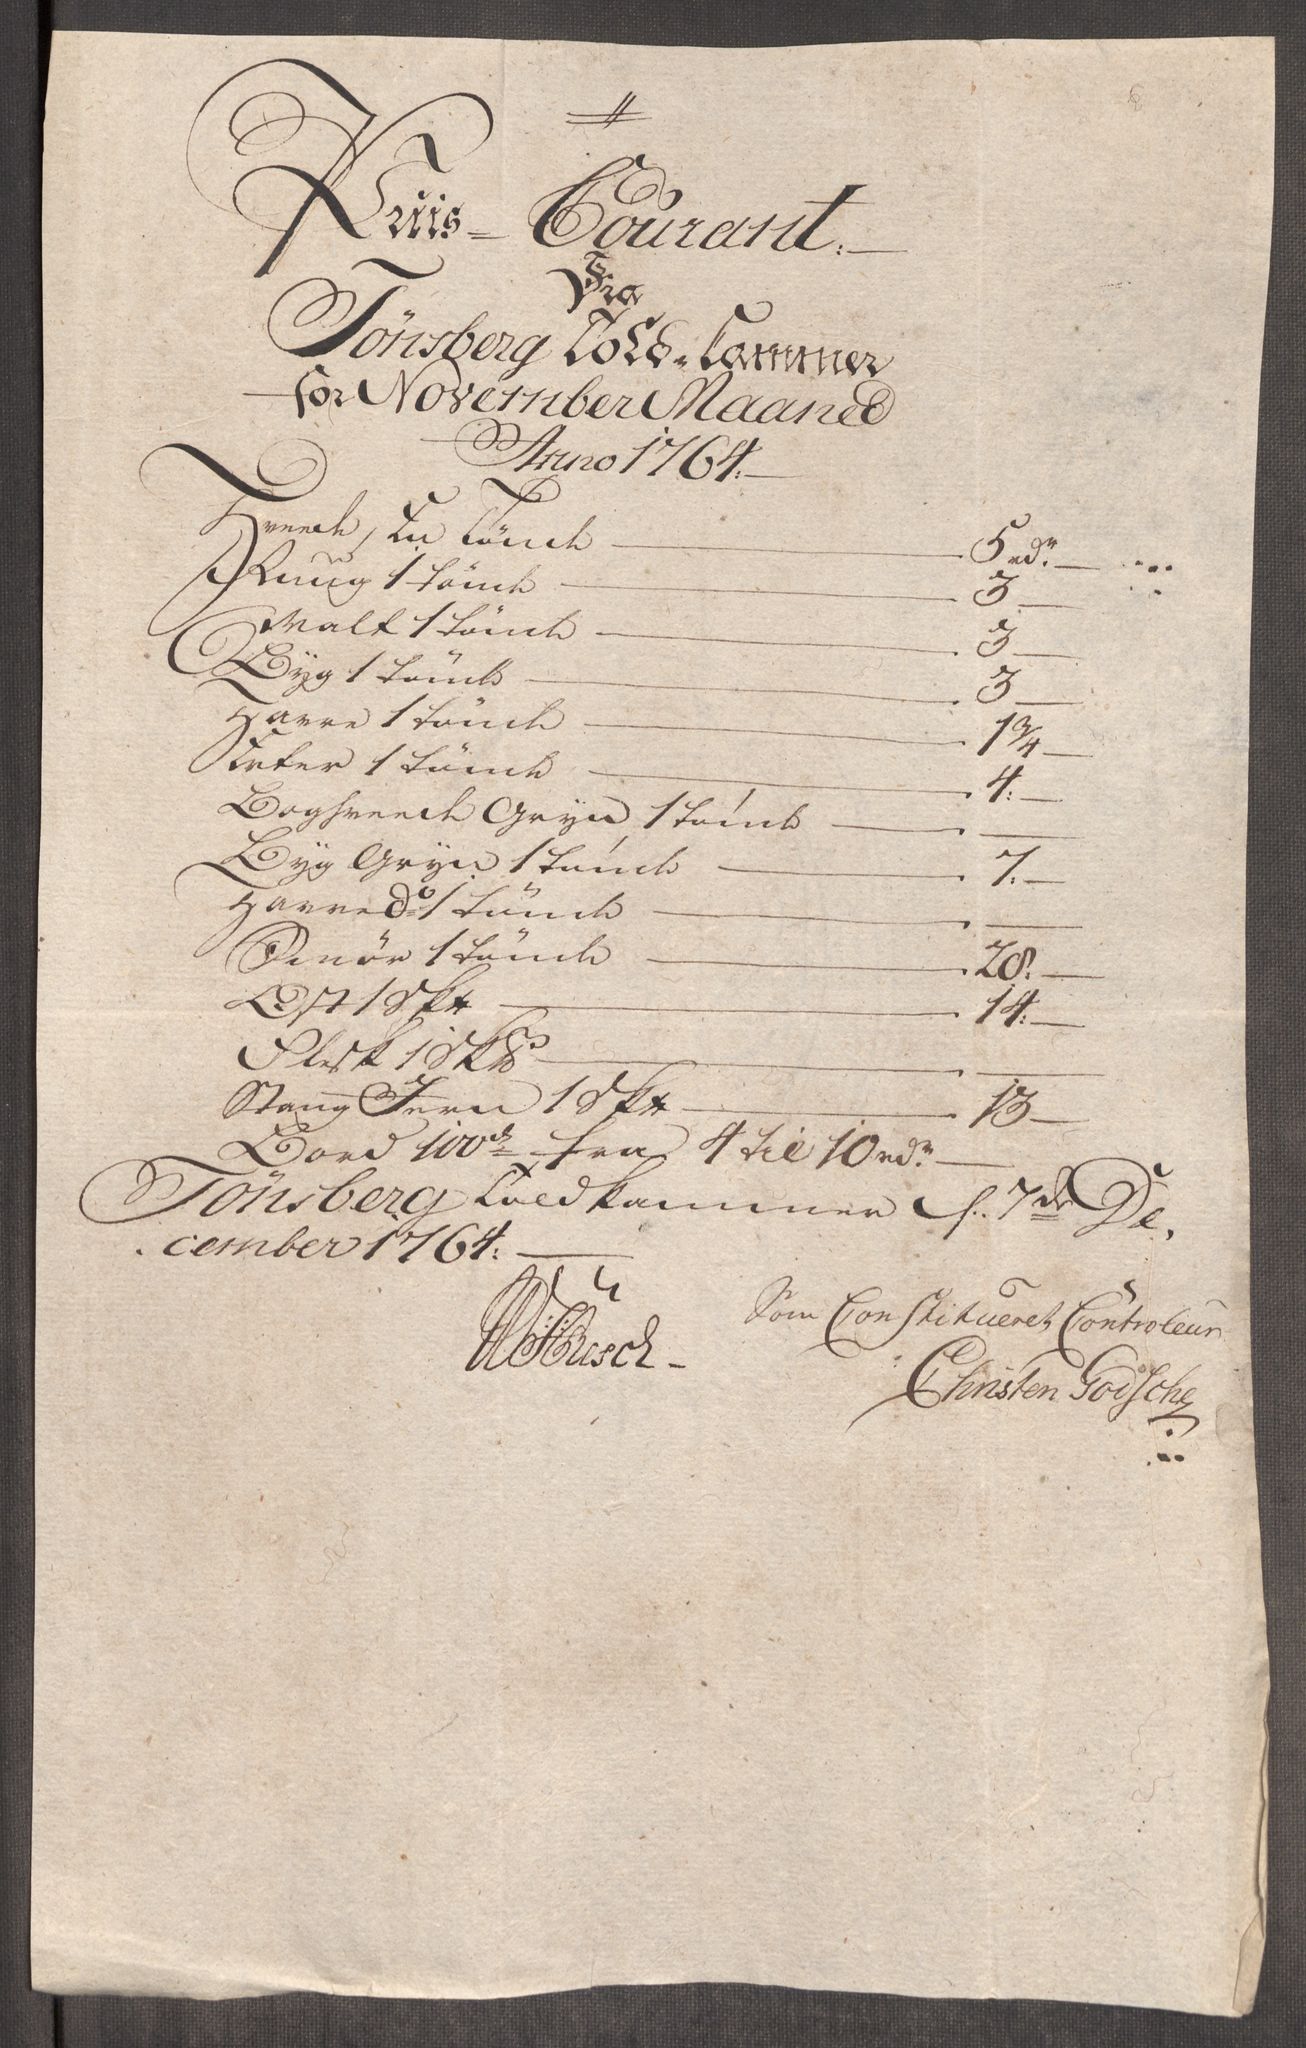 Priis-Courant
Fra
Tönsberg Told-Kammer
for November Maaned
Anno 1764.
Hveede, En Tönde 5 rdr
Ruug 1 tönde 3
Malt 1 tönde 3
Byg 1 tönde 3
Havre 1 tönde 1 3/4
Erter 1 tönde 4
Boghveede Gryn 1 tönde
Byg Gryn 1 tönde 7
Havre do 1 tönde
Smör 1 tönde 28
Ost 1 Skp
Flesk 1 Skp
Stang Jern 1 Skp 13
Bord 100de fra 4 til 10 rdr
Tönsberg Toldkammer d. 7de De
cember 1764.
Büsch
Som Constitueret Controleur
Christen Godsche